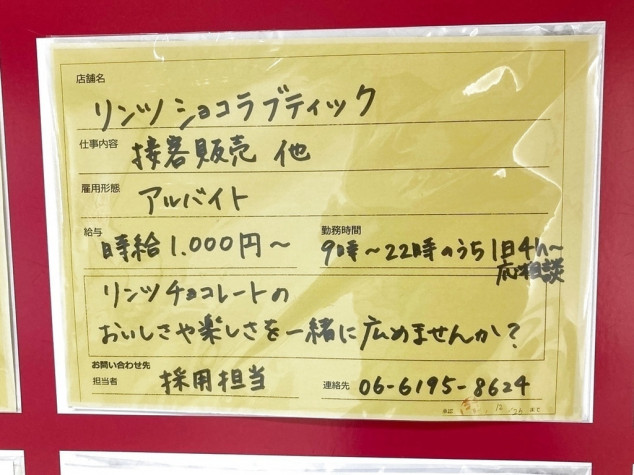 店舗名
リンツ ショコラブティック
仕事内容
接客販売 他
雇用形態
アルバイト
給与
時給1.000円〜
勤務時間
9時〜22時のうち1日4h〜
応相談
リンツチョコレートの
おいしさや楽しさを一緒に広めませんか?
お問い合わせ先
担当者
採用担当
連絡先
06-6195-8624